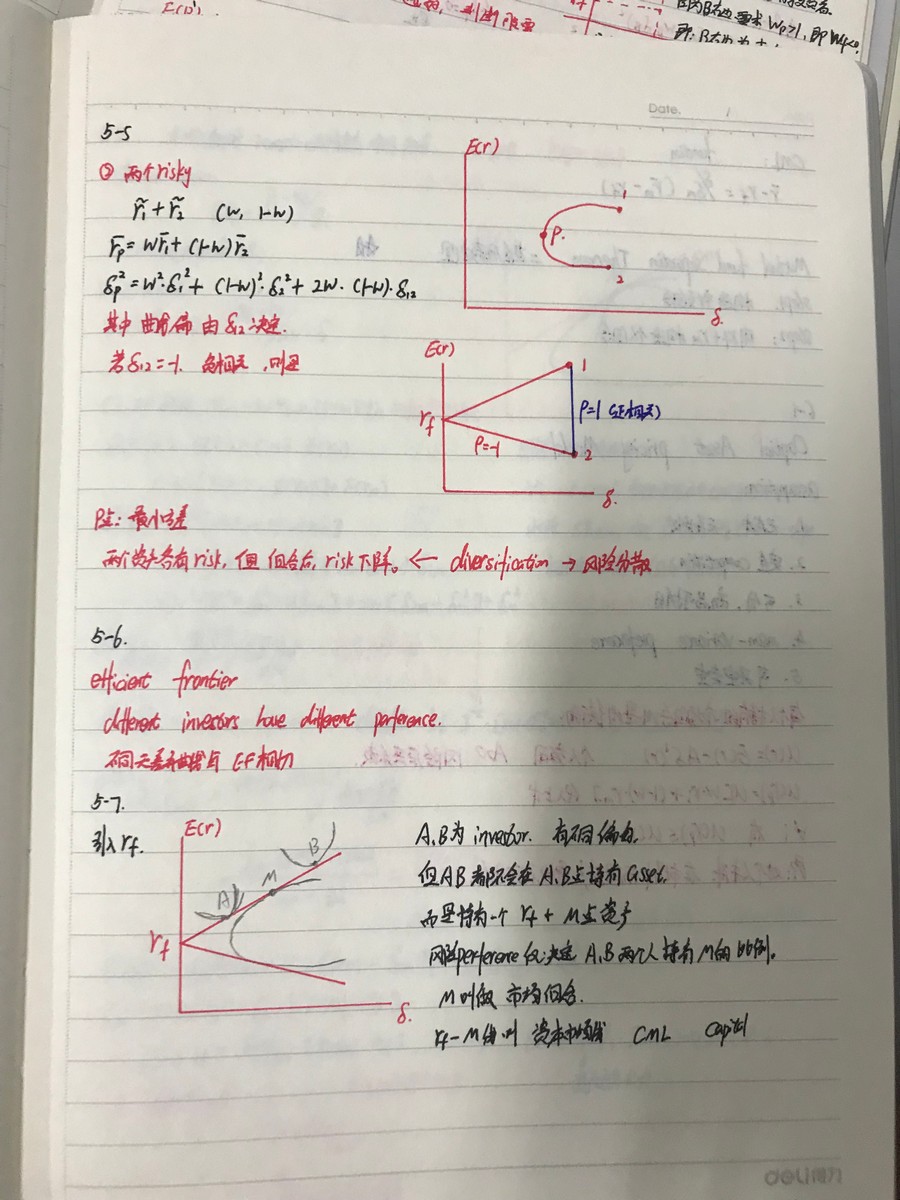 E(r)
Date.
5-5
② 两个risky
r̃₁+r̃₂ (w, 1-w)
r̄p=wr̄₁+(1-w)r̄₂
δp²=w²·δ₁²+(1-w)²·δ₂²+2w·(1-w)·δ₁₂
其中 曲 由δ₁₂决定.
若δ₁₂=-1. 负相关,则
E(r)
1
P.
2
δ.
E(r)
1
rf
ρ=1 (正相关)
ρ=-1
2
δ.
P点: 最小方差
两个资产各有risk, 但组合后, risk下降。← diversification → 风险分散
5-6.
efficient frontier
different investors have different perference.
不同无差异曲线与 EF相切
5-7.
引入rf.
E(r)
B
M
A
rf
δ.
A,B为 investor. 有不同偏好.
但AB都不会在A,B点持有asset.
而是持有一个 rf + M点资产
风险perference仅决定 A,B两个人持有M的比例。
M叫做 市场组合.
rf-M线叫 资本市场线 CML capital
deli得力